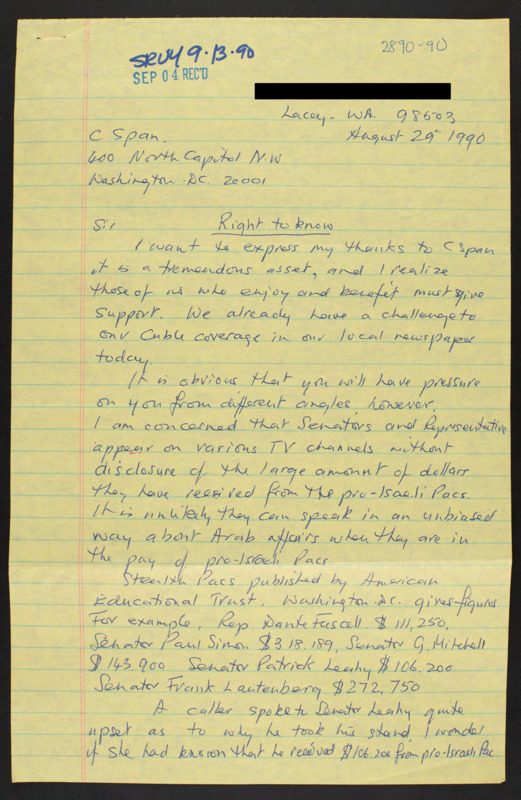 SRVY 9.13.90
SEP 04 REC'D
2890-90
Lacey. WA. 98503
August 29th 1990
C Span.
400 North Capitol N.W
Washington. DC. 20001
Sir
Right to know
I want to express my thanks to C Span
it is a tremendous asset, and I realize
those of us who enjoy and benefit must give
support. We already have a challenge to
our Cable coverage in our local newspaper
today.
It is obvious that you will have pressure
on you from different angles, however,
I am concerned that Senators and Representative
appear on various TV channels without
disclosure of the large amount of dollars
they have received from the pro-Israeli Pacs.
It is unlikely they can speak in an unbiased
way about Arab affairs when they are in
the pay of pro-Israeli Pacs
Stealth Pacs published by American
Educational Trust, Washington. DC. gives figures
For example, Rep. Dante Fascell. $111,250,
Senator Paul Simon $318.189, Senator G. Mitchell
$143.900 Senator Patrick Leahy $106.200
Senator Frank Lautenberg $272,750
A caller spoke to Senator Leahy quite
upset as to why he took his stand, I wonder
if she had known that he received $106.200 from pro-Israeli Pac